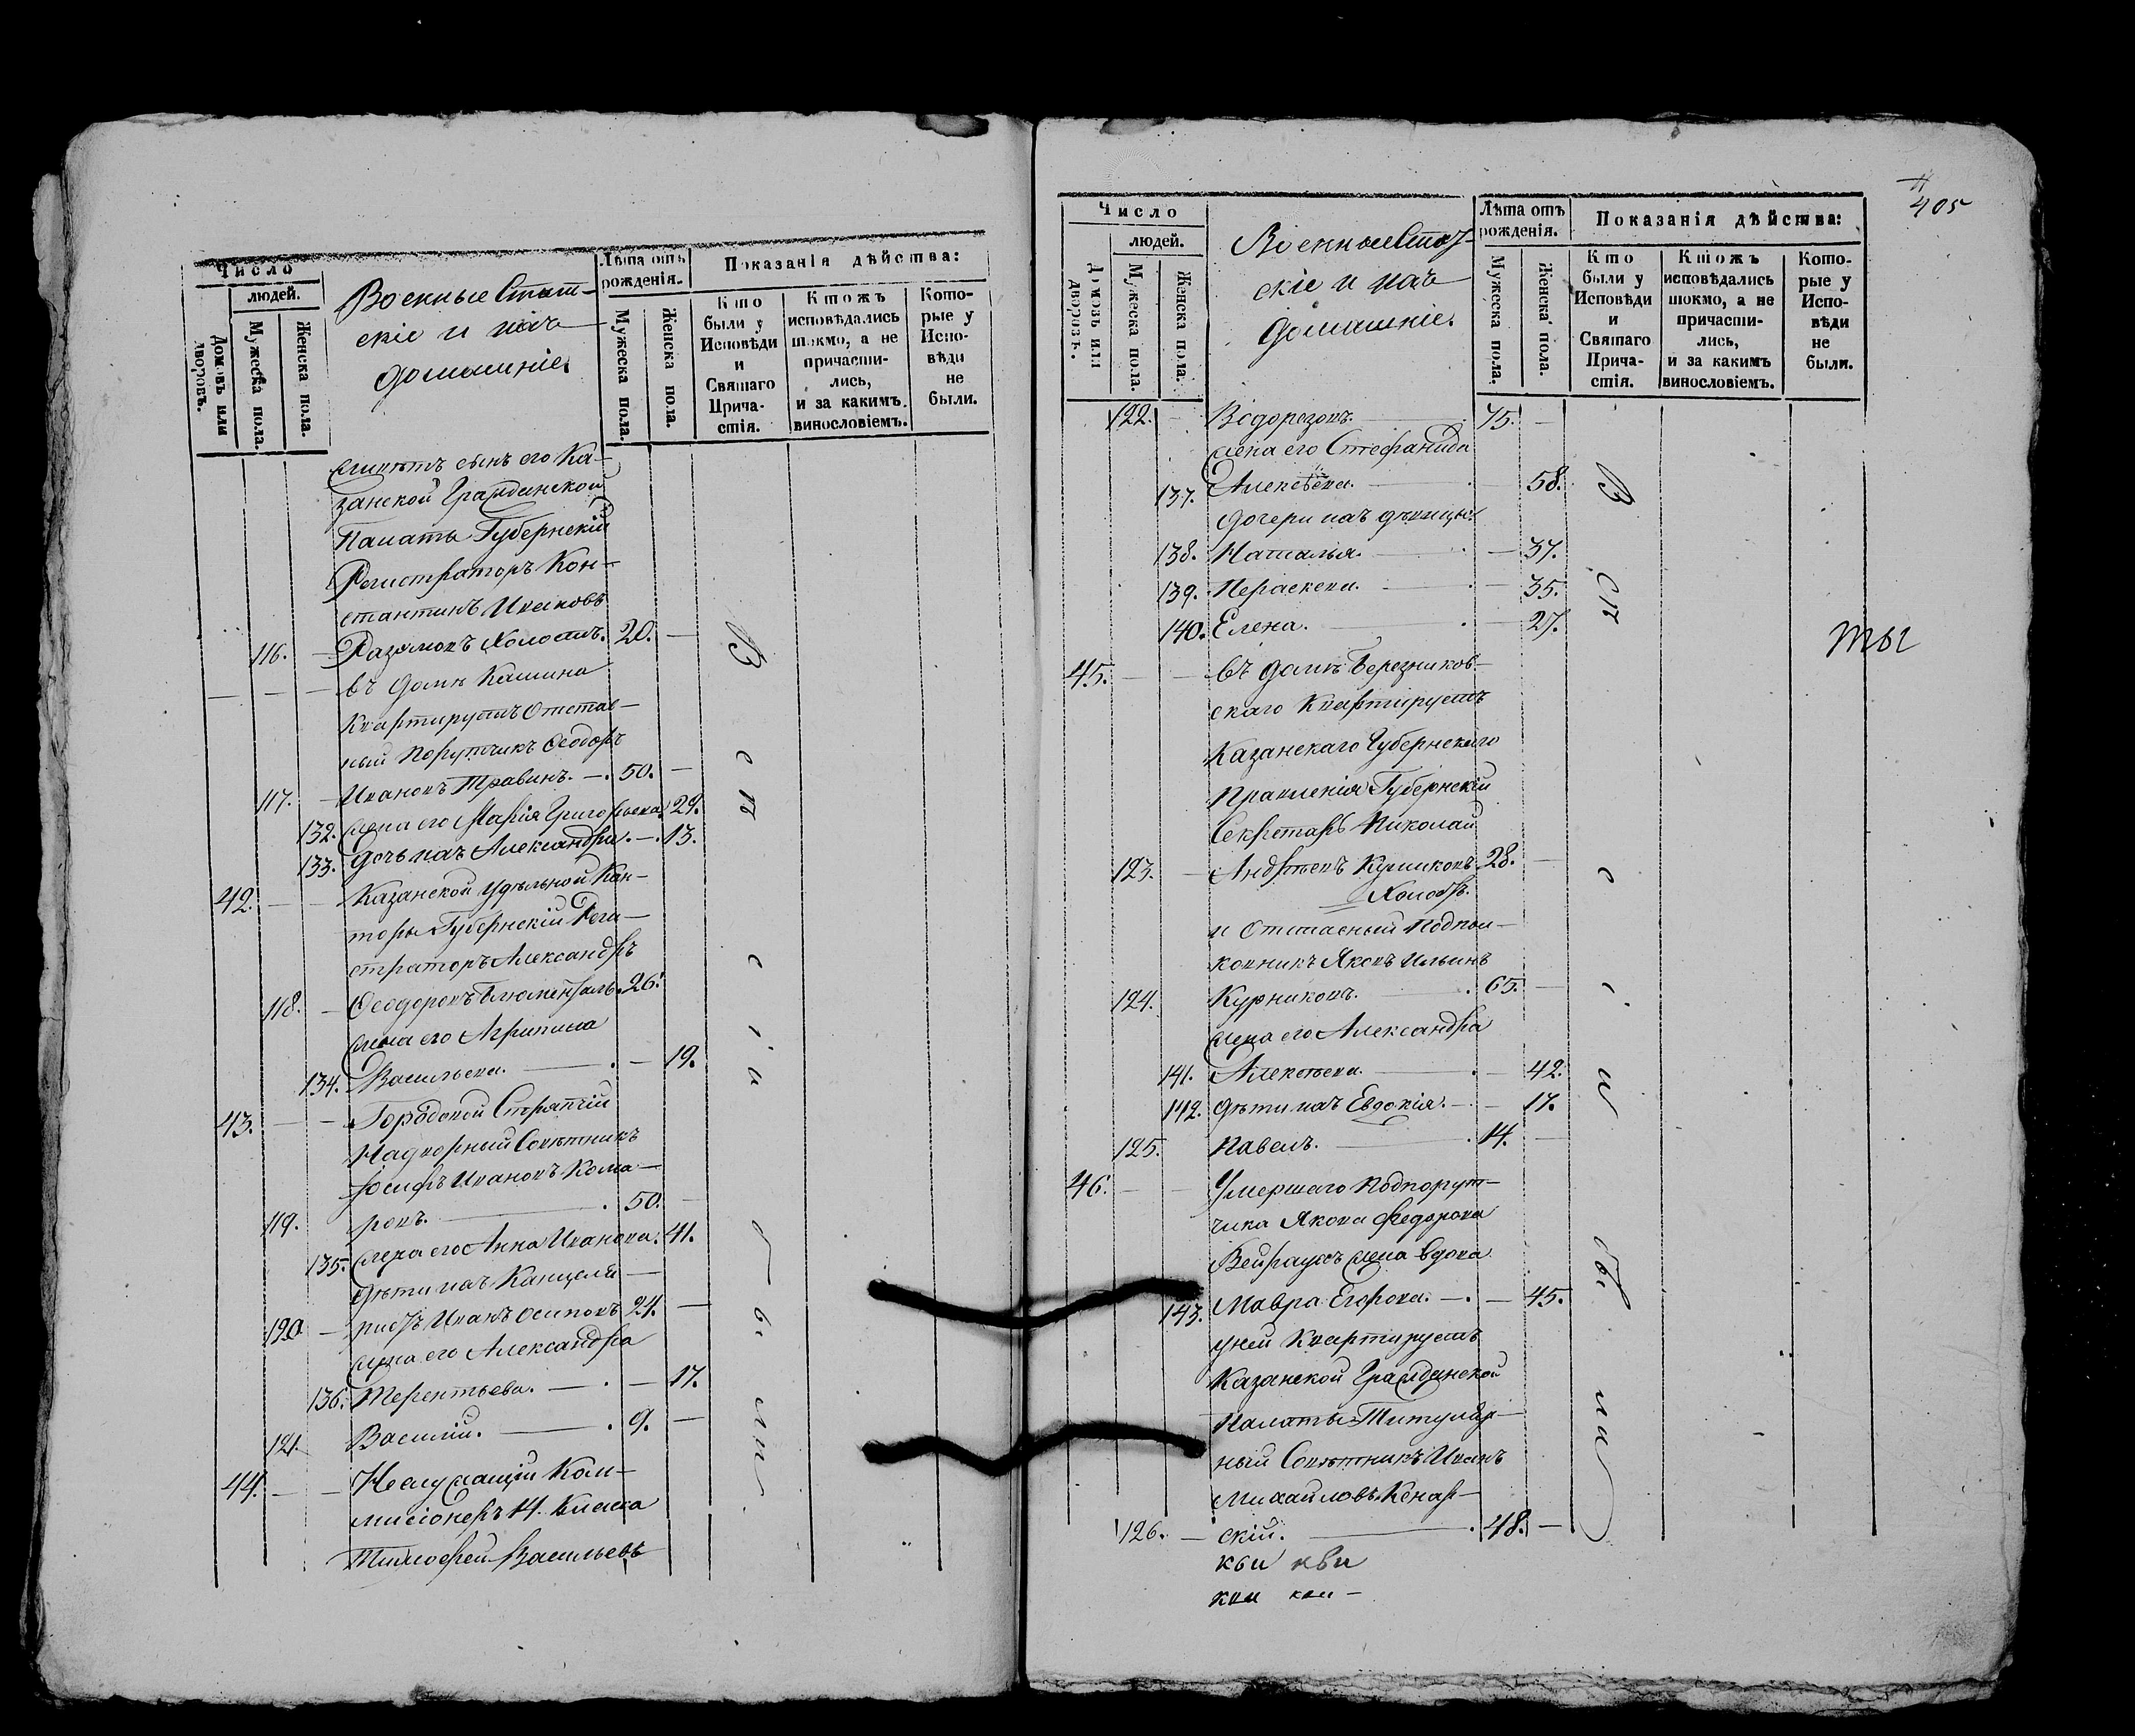 Число
людей.
Домовъ или дворовъ.
Мужеска пола.
Женска пола.
Военные Стат-
скіе и ихъ
домашніе.
Лѣта отъ рожденія.
Мужеска пола.
Женска пола.
Показанія дѣйства:
Кто были у Исповѣди и Святаго Причастія.
Ктожъ исповѣдались токмо, а не причастились, и за какимъ винословіемъ.
Которые у Исповѣди не были.
сынъ его Ка-
занской Гражданской
Палаты Губернскій
Регистраторъ Кон-
стантинъ Ивановъ
116. — Холостъ. 20. —
— — — въ домѣ Кашина
Квартируетъ Отстав-
ный Порутчикъ Ѳеодоръ
117. — Ивановъ Травинъ. — 50. —
132. жена его Марія Григорьева. 29.
133. дочь ихъ Александра. — 13.
42. — — Казанской Удѣльной Кон-
торы Губернскій Реги-
страторъ Александръ
118. — Ѳеодоровъ Блюменталь. 26.
жена его Агрипина
134. Васильева. — — 19.
43. — — Городовой Стряпчій
Надворный Совѣтникъ
Іосифъ Ивановъ Кома-
119. ровъ. — 50. —
135. жена его Анна Иванова. 41.
дѣти ихъ Канцеля-
120 — ристъ Иванъ Осиповъ 24. —
жена его Александра
136. Терентьева. — — 17.
121. Василій. — 9. —
44. — — Неслужащій Ком-
мисіонеръ 14. Класса
Тимофей Васильевъ
Всѣ
сіи
были
405
Число
людей.
Домовъ или дворовъ.
Мужеска пола.
Женска пола.
Военные Стат-
скіе и ихъ
домашніе.
Лѣта отъ рожденія.
Мужеска пола.
Женска пола.
Показанія дѣйства:
Кто были у Исповѣди и Святаго Причастія.
Ктожъ исповѣдались токмо, а не причастились, и за какимъ винословіемъ.
Которые у Исповѣди не были.
122. — Водорезовъ. — 75. —
жена его Стефанида
137. Алексѣева. — — 58.
дочери ихъ дѣвицы:
138. Наталья. — — 37.
139. Параскева. — — 35.
140. Елена. — — 27.
45. — — въ домѣ Березников-
скаго Квартируетъ
Казанскаго Губернскаго
Правленія Губернскій
Секретарь Николай
123. — Андрѣевъ Куликовъ 28. —
Холостъ.
и Отставный Подпол-
ковникъ Яковъ Ильинъ
124. Курниковъ. — 65. —
жена его Александра
141. Алексѣева. — — 42.
142. дѣти ихъ Евдокія. — — 17.
125. Павелъ. — 14. —
46. — — Умершаго Подпорут-
чика Якова Федорова
Вейраухъ жена вдова
143. Мавра Егорова. — — 45.
у ней Квартируетъ
Казанской Гражданской
Палаты Титуляр-
ный Совѣтникъ Иванъ
Михайловъ Кенар-
126. — скій. — 48. —
Всѣ
сіи
были
ты